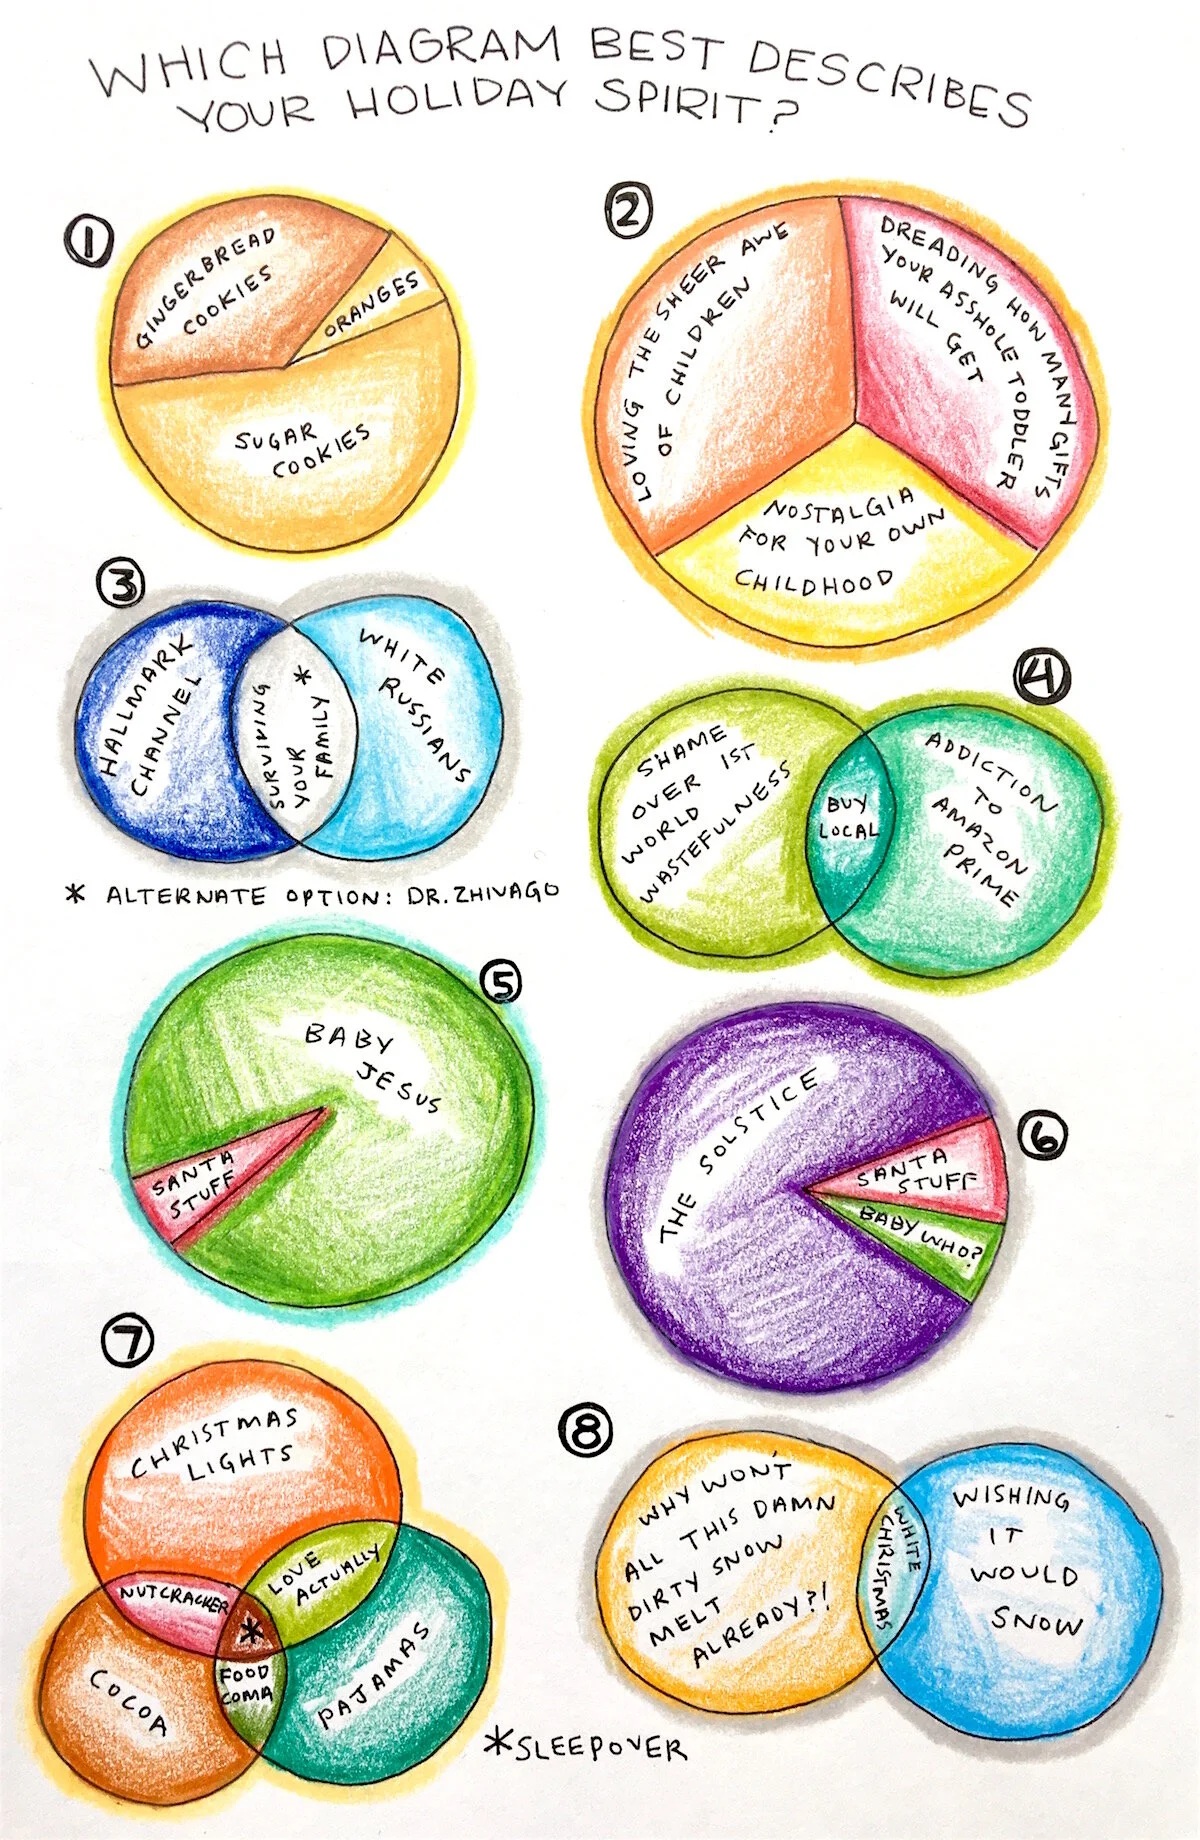 WHICH DIAGRAM BEST DESCRIBES
YOUR HOLIDAY SPIRIT?
1
GINGERBREAD
COOKIES
ORANGES
SUGAR
COOKIES
2
LOVING THE SHEER AWE
OF CHILDREN
DREADING HOW MANY GIFTS
YOUR ASSHOLE TODDLER
WILL GET
NOSTALGIA
FOR YOUR OWN
CHILDHOOD
3
HALLMARK
CHANNEL
SURVIVING
YOUR
FAMILY *
WHITE
RUSSIANS
* ALTERNATE OPTION: DR. ZHIVAGO
4
SHAME
OVER 1ST
WORLD
WASTEFULNESS
BUY
LOCAL
ADDICTION
TO
AMAZON
PRIME
5
BABY
JESUS
SANTA
STUFF
6
THE SOLSTICE
SANTA
STUFF
BABY WHO?
7
CHRISTMAS
LIGHTS
NUTCRACKER
LOVE
ACTUALLY
*
FOOD
COMA
COCOA
PAJAMAS
* SLEEPOVER
8
WHY WON'T
ALL THIS DAMN
DIRTY SNOW
MELT
ALREADY?!
WHITE
CHRISTMAS
WISHING
IT
WOULD
SNOW